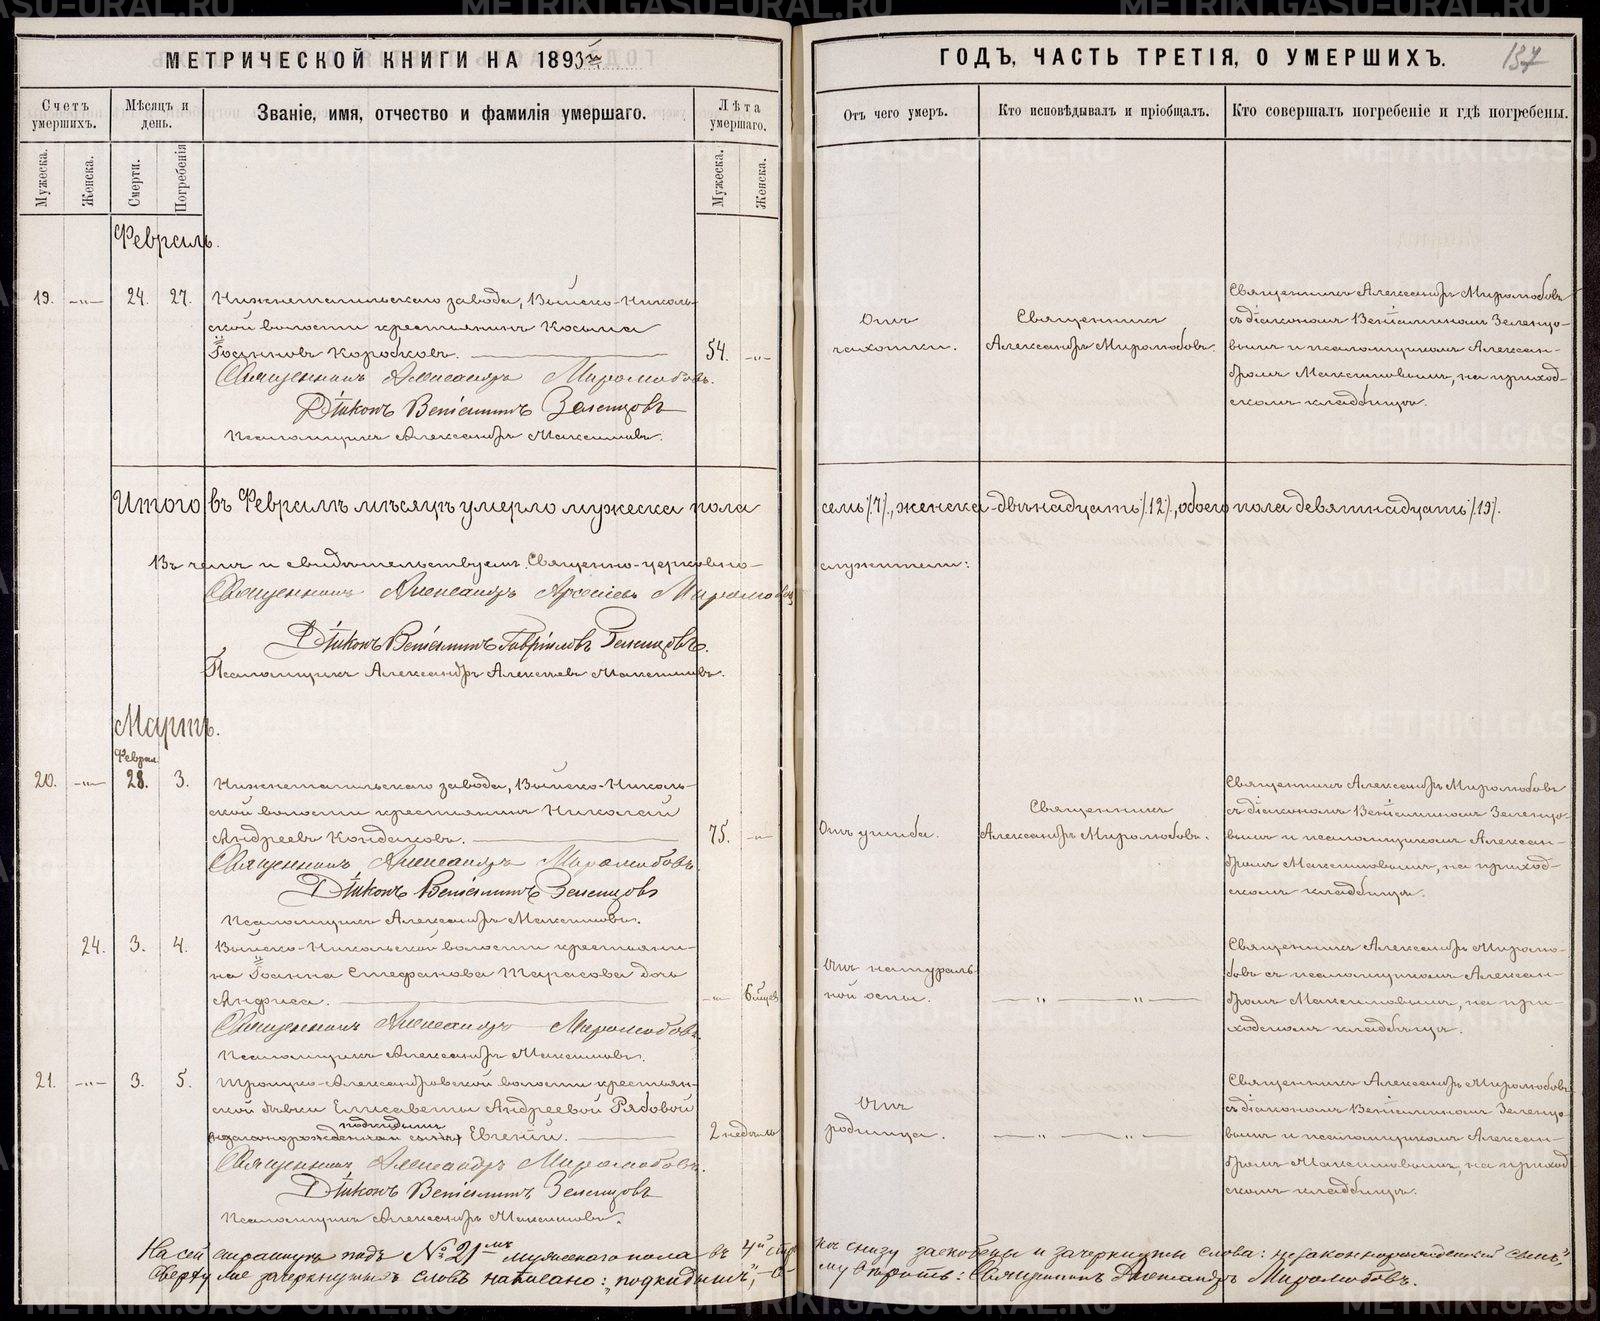 МЕТРИЧЕСКОЙ КНИГИ НА 1893й
Счетъ умершихъ.
Мѣсяцъ и день.
Званіе, имя, отчество и фамилія умершаго.
Лѣта умершаго.
Мужеска.
Женска.
Смерти.
Погребенія
Мужеска.
Женска.
Февраль.
19. -"- 24. 27. Нижнетагильскаго завода, Выйско-Николь-
ской волости крестьянинъ Косьма
Іоанновъ Коробковъ. 54. -"-
Священникъ Александръ Миролюбовъ.
Діаконъ Веніаминъ Зеленцовъ
Псаломщикъ Александръ Максимовъ.
Итого въ Февралѣ мѣсяцѣ умерло мужеска пола
Въ чемъ и свидѣтельствуемъ Священно-церковно-
Священникъ Александръ Арсеніевъ Миролюбовъ
Діаконъ Веніаминъ Гавріиловъ Зеленцовъ.
Псаломщикъ Александръ Алексѣевъ Максимовъ.
Мартъ.
Феврал
20. -"- 28. 3. Нижнетагильскаго завода, Выйско-Николь-
ской волости крестьянинъ Николай
Андреевъ Кондаковъ. 75. -"-
Священникъ Александръ Миролюбовъ.
Діаконъ Веніаминъ Зеленцовъ
Псаломщикъ Александръ Максимовъ.
24. 3. 4. Выйско-Никольской волости крестьяни-
на Іоанна Стефанова Тарасова дочь
Анфиса. -"- 6 мѣсяц
Священникъ Александръ Миролюбовъ.
Псаломщикъ Александръ Максимовъ.
21. -"- 3. 5. Троицко-Александровской волости крестьян-
ской дѣвки Елисаветы Андреевой Рябовой
подкидышъ
незаконорожденный сынъ Евгеній. 2 недѣль
Священникъ Александръ Миролюбовъ.
Діаконъ Веніаминъ Зеленцовъ
Псаломщикъ Александръ Максимовъ.
На сей страницѣ подъ №21мъ мужескаго пола въ 4й стро
Сверху же зачеркнутыхъ словъ написано: "подкидышъ",
ГОДЪ, ЧАСТЬ ТРЕТІЯ, О УМЕРШИХЪ.
157
Отъ чего умеръ.
Кто исповѣдывалъ и пріобщалъ.
Кто совершалъ погребеніе и гдѣ погребены.
Отъ
чахотки.
Священникъ
Александръ Миролюбовъ.
Священникъ Александръ Миролюбовъ
съ діакономъ Веніаминомъ Зеленцо-
вымъ и псаломщикомъ Алексан-
дромъ Максимовымъ, на приход-
скомъ кладбищѣ.
семь /.7/., женска-двѣнадцать /.12/., обоего пола девятнадцать /.19/.
служители:
Отъ ушиба.
Священникъ
Александръ Миролюбовъ.
Священникъ Александръ Миролюбовъ
съ діакономъ Веніаминомъ Зеленцо-
вымъ и псаломщикомъ Алексан-
дромъ Максимовымъ, на приход-
скомъ кладбищѣ.
Отъ натураль-
ной оспы.
-"- -"-
Священникъ Александръ Миролю-
бовъ съ псаломщикомъ Алексан-
дромъ Максимовымъ, на при-
ходскомъ кладбищѣ.
Отъ
родимца.
-"- -"-
Священникъ Александръ Миролюбовъ
съ діакономъ Веніаминомъ Зеленцо-
вымъ и псаломщикомъ Алексан-
дромъ Максимовымъ, на приход
скомъ кладбищѣ.
кѣ снизу заскоблены и зачеркнуты слова: незаконнорожденный сынъ,
му вѣрить: Священникъ Александръ Миролюбовъ.
METRIKI.GASO-URAL.RU